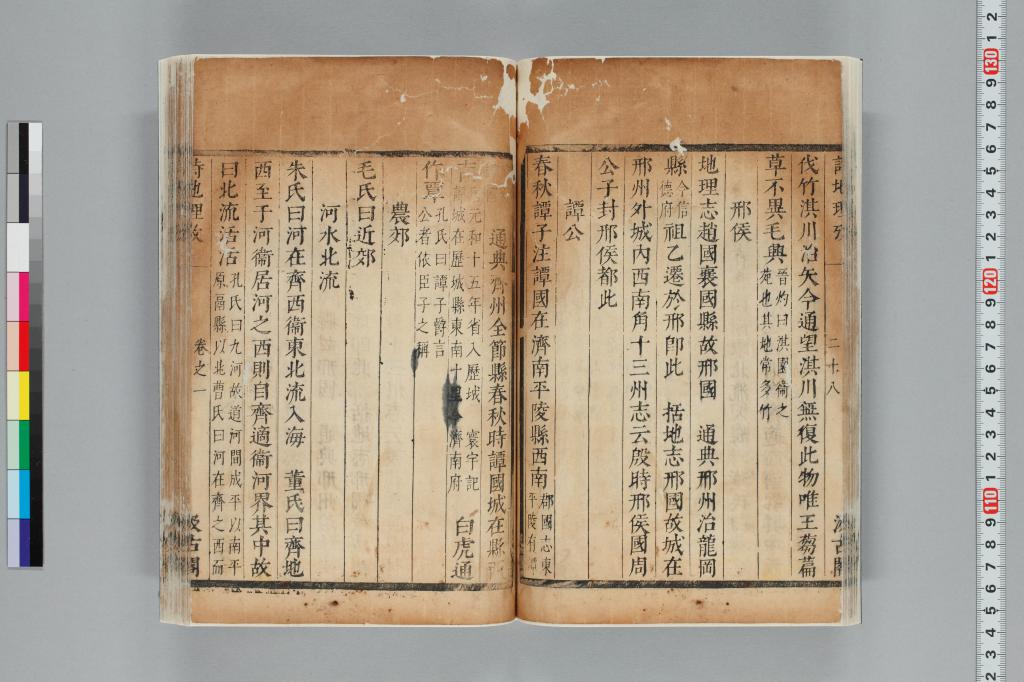 詩地理攷 一 二十八 汲古閣
伐竹淇川治矢今通望淇川無復此物唯王芻萹
草不異毛興 晉灼曰淇園衞之
苑也其地常多竹
邢侯
地理志趙國襄國縣故邢國 通典邢州治龍岡
縣 今信
德府 祖乙遷於邢卽此 括地志邢國故城在
邢州外城內西南角十三州志云殷時邢侯國周
公子封邢侯都此
譚公
春秋譚子注譚國在濟南平陵縣西南 郡國志東
平陵有譚
通典齊州全節縣春秋時譚國城在縣
元和十五年省入歷城 寰宇記
譚城在歷城縣東南十里今濟南府 白虎通
作覃 孔氏曰譚子爵言
公者依臣子之稱
農郊
毛氏曰近郊
河水北流
朱氏曰河在齊西衞東北流入海 董氏曰齊地
西至于河衞居河之西則自齊適衞河界其中故
曰北流活活 孔氏曰九河故道河間成平以南平
原鬲縣以北曹氏曰河在齊之西而
詩地理攷 卷之一 汲古閣